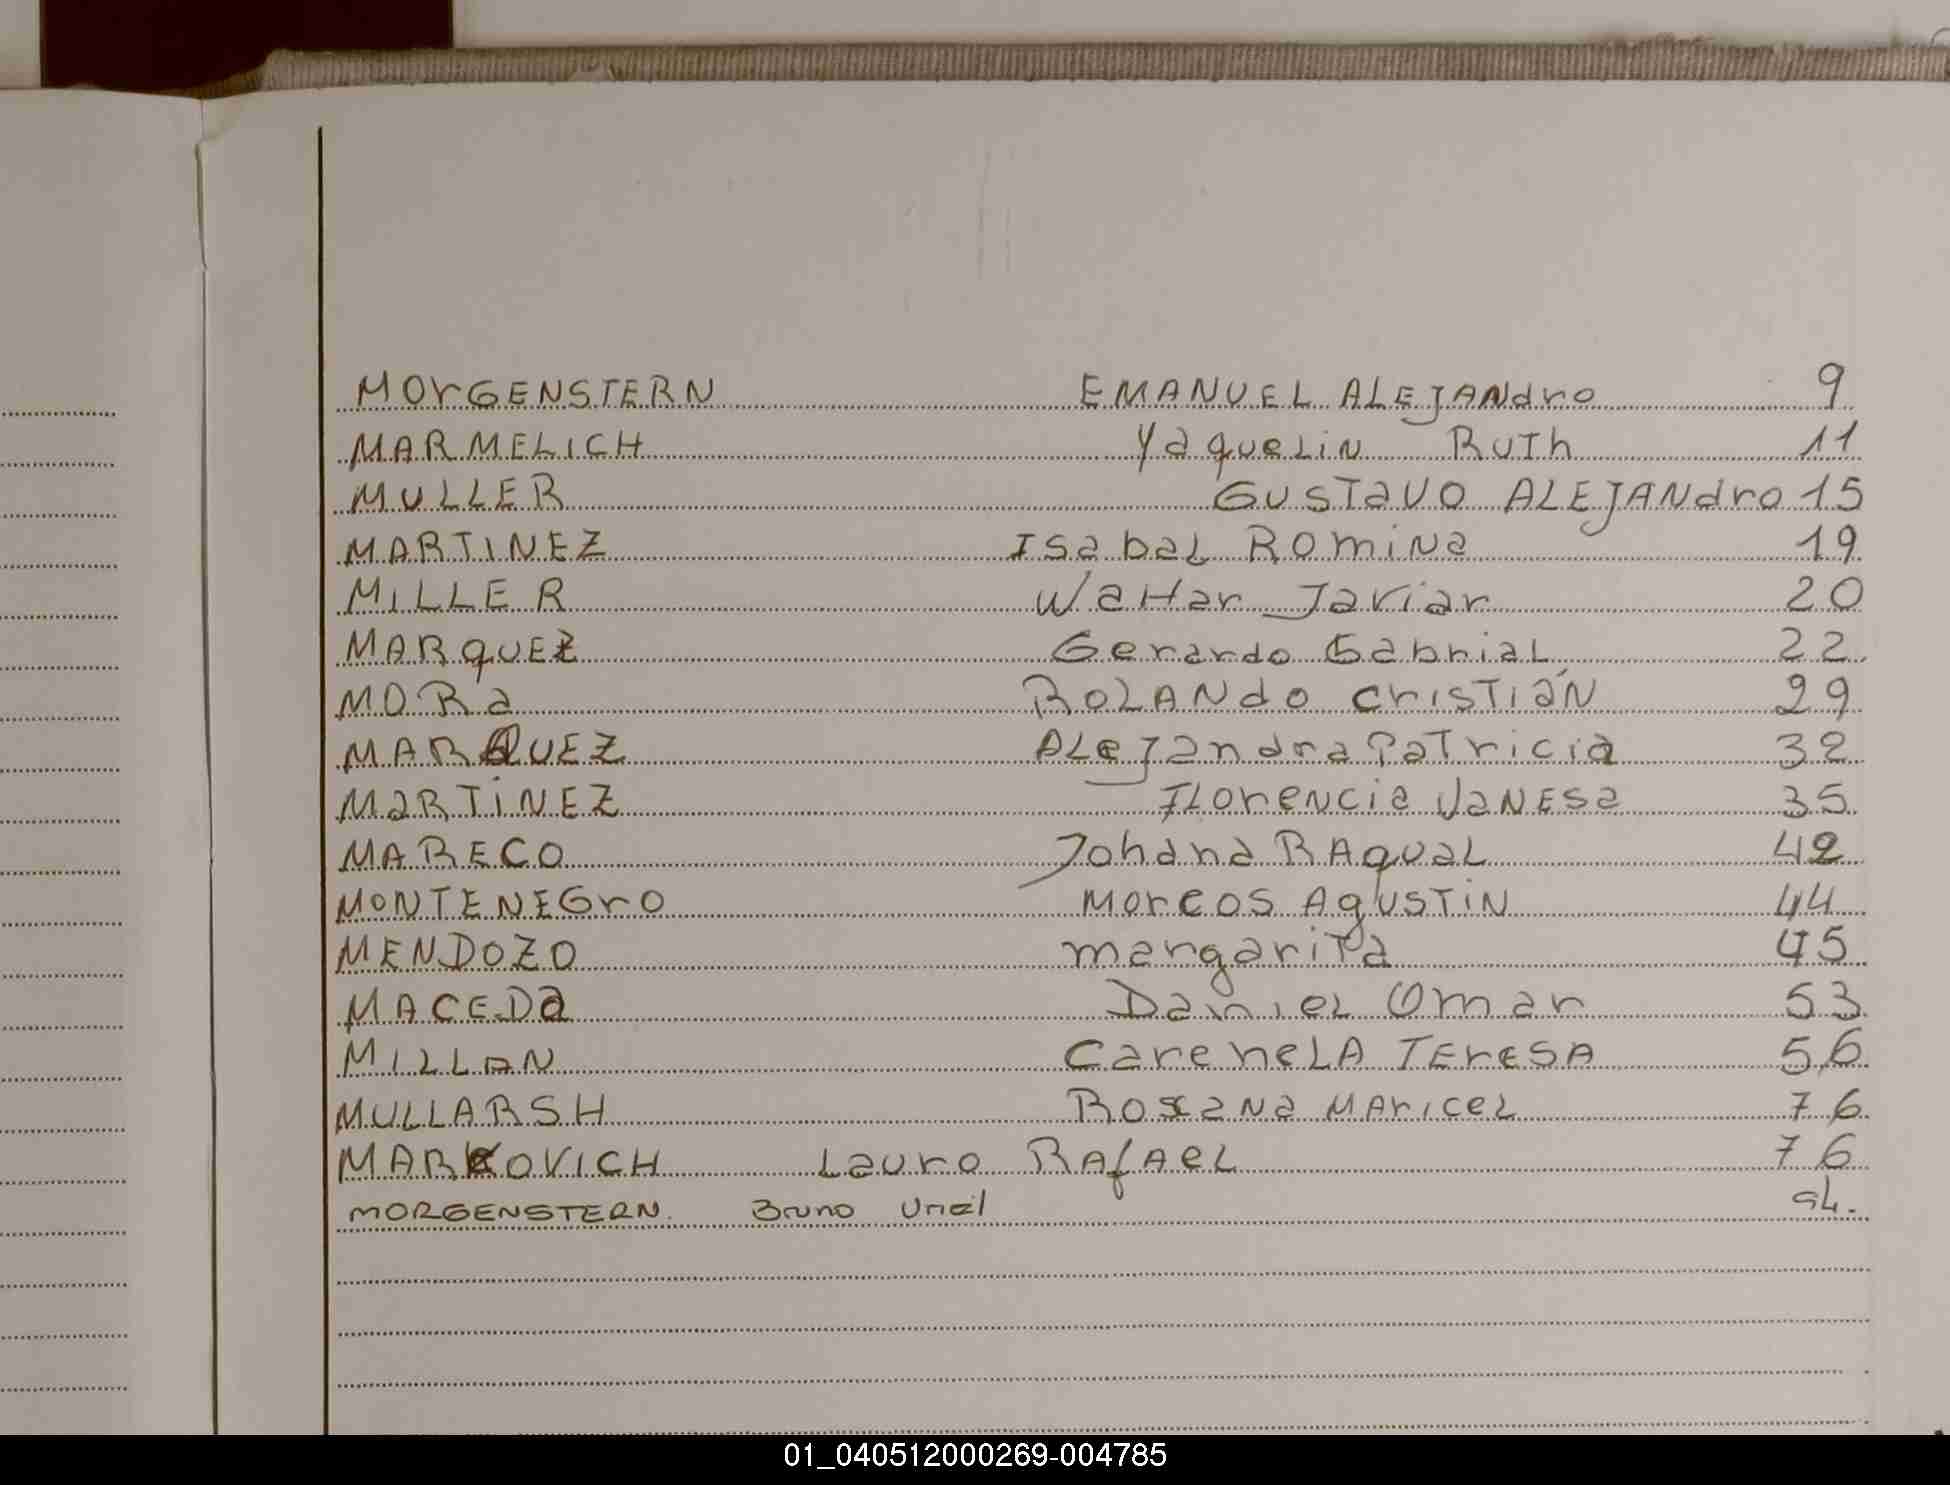 MORGENSTERN EMANUEL ALEJANdro 9
MARMELICH YaqueLin RUTh 11
MULLER GUSTaVO ALEJANdro 15
MARTINEZ Isabal Romina 19
MILLER Waltar Javiar 20
MARqUEZ Gerardo Gabrial 22
MORa ROLANdo CrisTián 29
MARQUEZ ALeJandra PaTricia 32
MaRTiNEZ FLorencia VaNESa 35
MARECO Johana RAquaL 42
MONTENEGrO Morcos AgusTiN 44
MENDOZO margariTa 45
MACEDa DanieL Omar 53
MILLAN CareneLA TEreSA 56
MULLARSH Roxana MAriceL 76
MARKOVICH Lauro RAfAeL 76
MORGENSTERN. Bruno Uriel 94.
01_040512000269-004785